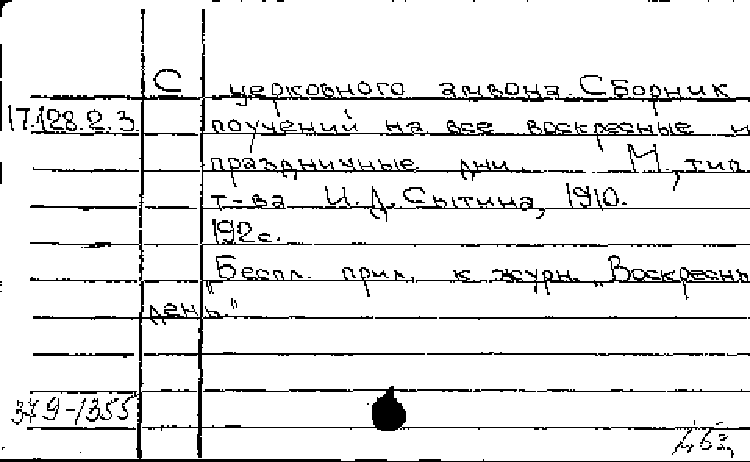 С церковного амвона. Сборник
17.128.2.3 поучений на все воскресные и
праздничные дни М, тип.
т-ва И.Д. Сытина, 1910.
192 с.
Беспл. прил. к журн. „Воскресн
день."
379-1355